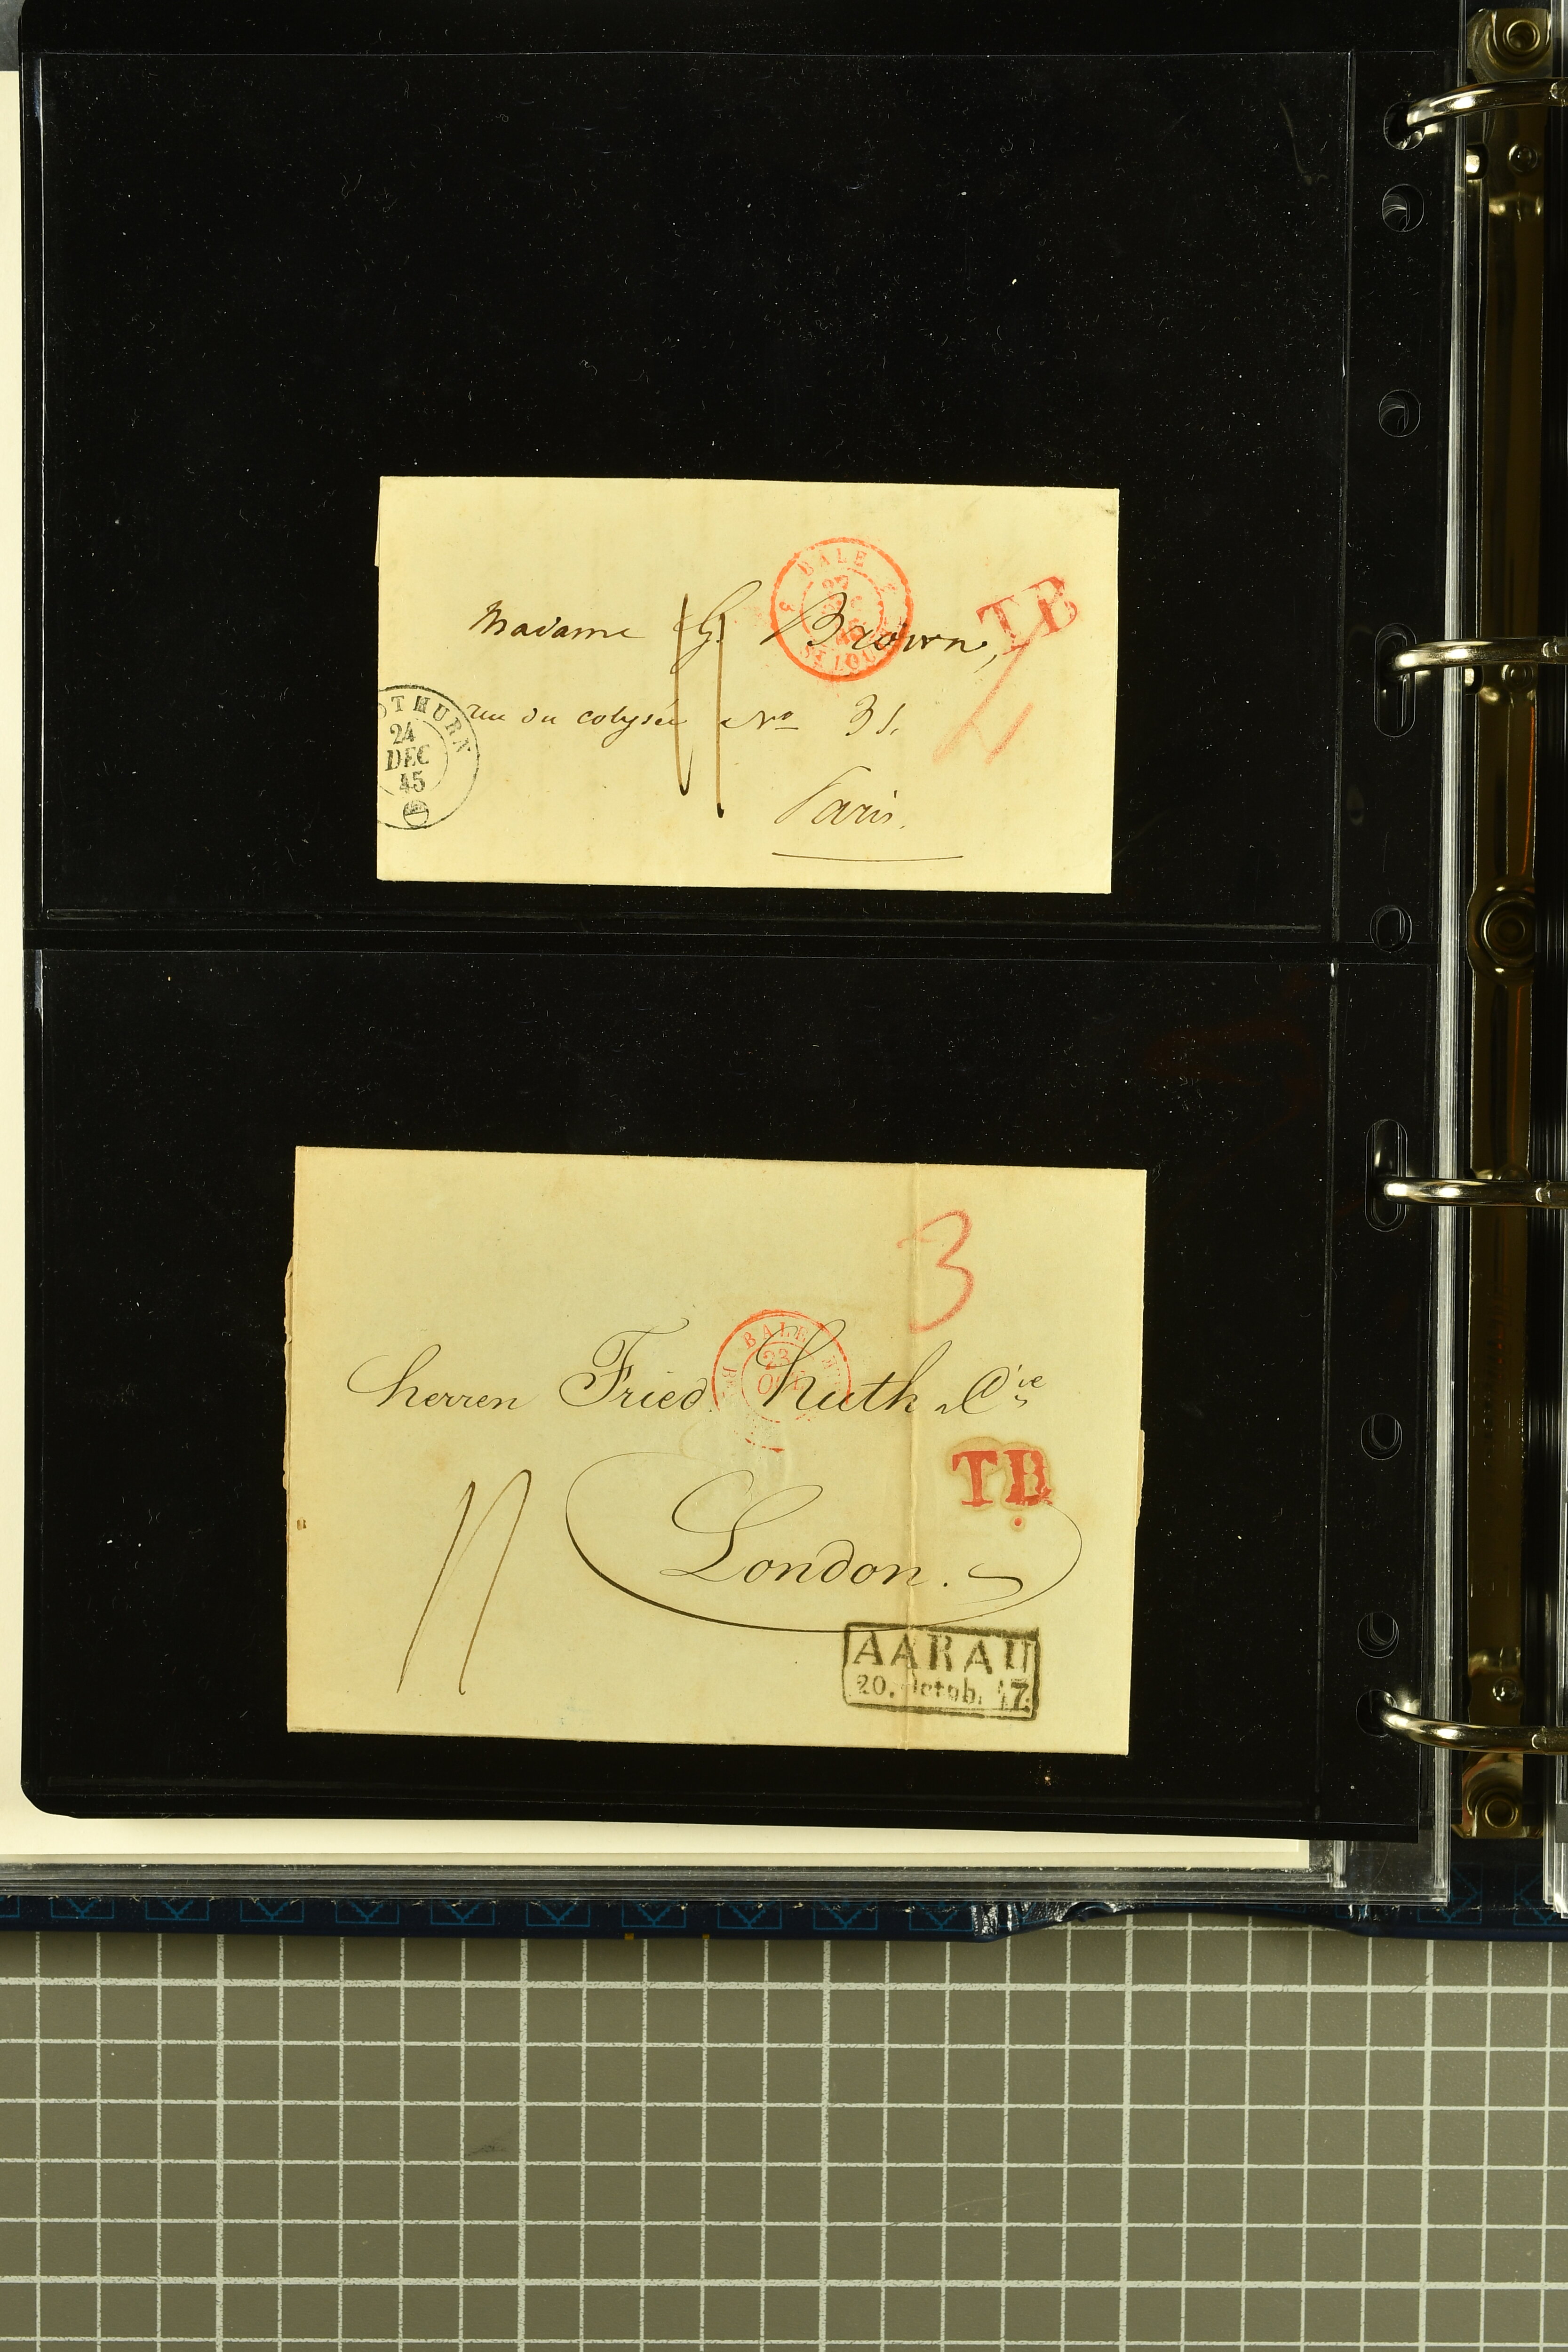 BALE
27
ST LOUIS
T B
Madame G. Brown,
4
rue du colysée No 31.
OTHURN
24
DEC
45
11
Paris.
3
BALE
23
OCT
Herren Fried Huth & Cie
TB.
11
London.
AARAU
20. Octob. 47.